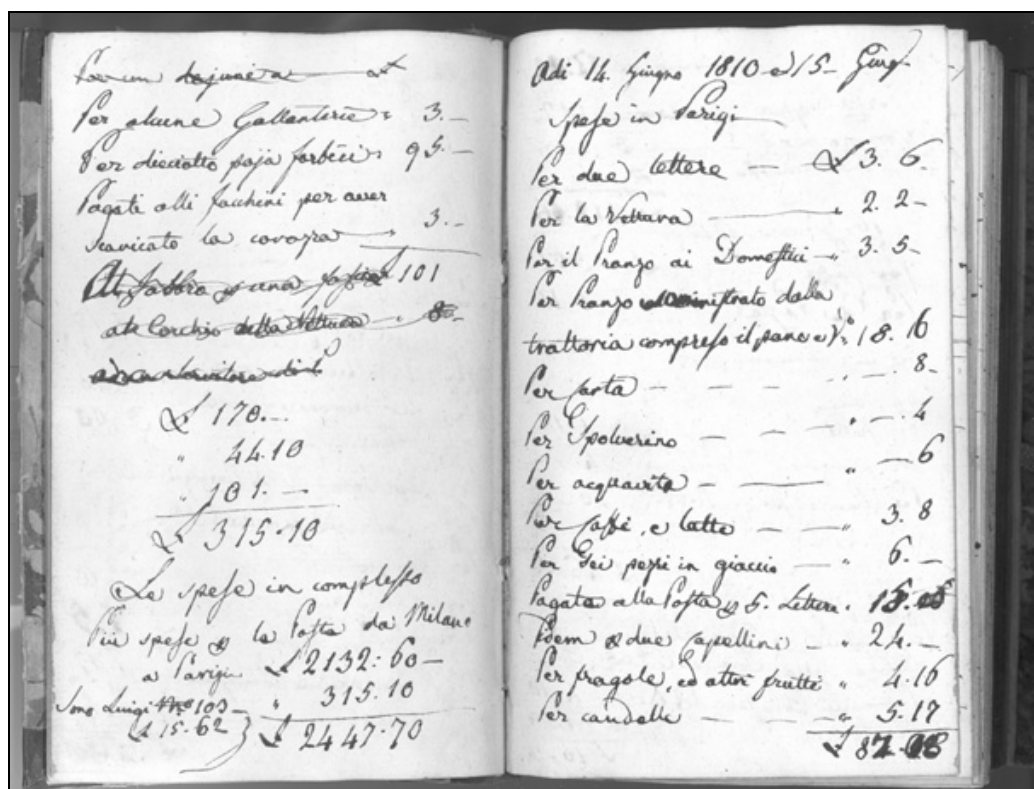 Per alcune Gallanterie " 3.—
Per dieciotto paja forbici " 95.—
Pagati alli facchini per aver
scaricato la carozza — " 3.—
101
Al fabbro
al Cerchio della Vettura — "
£ 170.—
" 44.10
" 101.—
£ 315.10
Le spese in complesso
Più spese p la Posta da Milano
a Parigi £ 2132:60—
" 315.10
Sono Luigi N° 103—
£ 15.62 } £ 2447.70
Adi 14. Giugno 1810 ed 15— Giug.
Spese in Parigi
Per due lettere — £ 3. 6.
Per la Vettura — " 2. 2—
Per il Pranzo ai Domestici — " 3. 5—
Per Pranzo dalla
trattoria compreso il pane e V° " 18. 6
Per carta — — — " —. 8—
Per Spolverino — — — " —. 4
Per acquavita — — " — 6
Per Caffè, e latte — — " 3. 8
Per Sei pezzi in giaccio — " 6. —
Pagata alla Posta p 5. Lettere "
Idem p due Capellini — " 24. —
Per fragole, ed altri frutti " 4.16
Per candelle — — — " 5.17
£